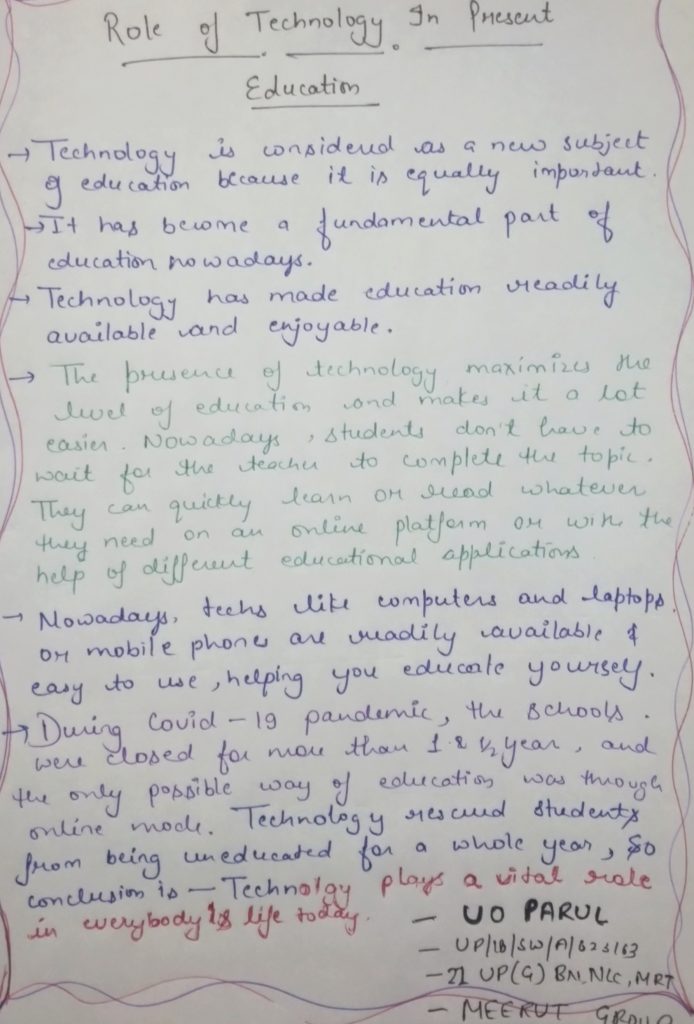 Role of Technology In Present
Education
→ Technology is considered as a new subject
of education because it is equally important.
→ It has become a fundamental part of
education nowadays.
→ Technology has made education readily
available and enjoyable.
→ The presence of technology maximizes the
level of education and makes it a lot
easier. Nowadays, students don't have to
wait for the teacher to complete the topic.
They can quickly learn or read whatever
they need on an online platform or with the
help of different educational applications.
→ Nowadays, techs like computers and laptops
or mobile phones are readily available &
easy to use, helping you educate yourself.
→ During Covid-19 pandemic, the schools.
were closed for more than 1 & ½ year, and
the only possible way of education was through
online mode. Technology rescued students
from being uneducated for a whole year, So
conclusion is – Technolgy plays a vital role
in everybody's life today.
– UO PARUL
– UP/18/SW/A/623163
– 21 UP(G) BN, NCC, MRT
– MEERUT GROUP